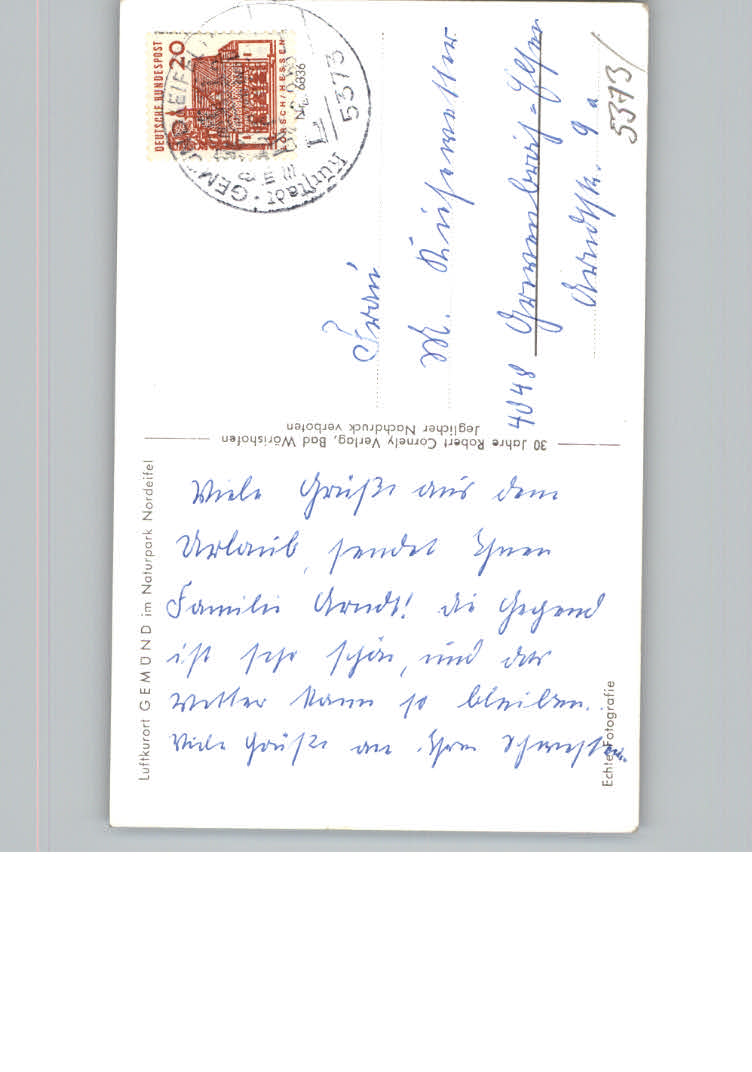 Luftkurort GEMÜND im Naturpark Nordeifel
Viele Grüße aus dem
Urlaub, sendet Ihnen
Familie Arndt! die Gegend
ist sehr schön, und das
Wetter kann so bleiben.
Viele Grüße an Ihre Schwester.
Echte Fotografie
30 Jahre Robert Cornely Verlag, Bad Wörishofen
Jeglicher Nachdruck verboten
DEUTSCHE BUNDESPOST
20
LORSCH/HESSEN
5373
Nr. 6836
Frau
M.
4048 Grevenbroich-Elsen
Arndtstr. 9a
5373/